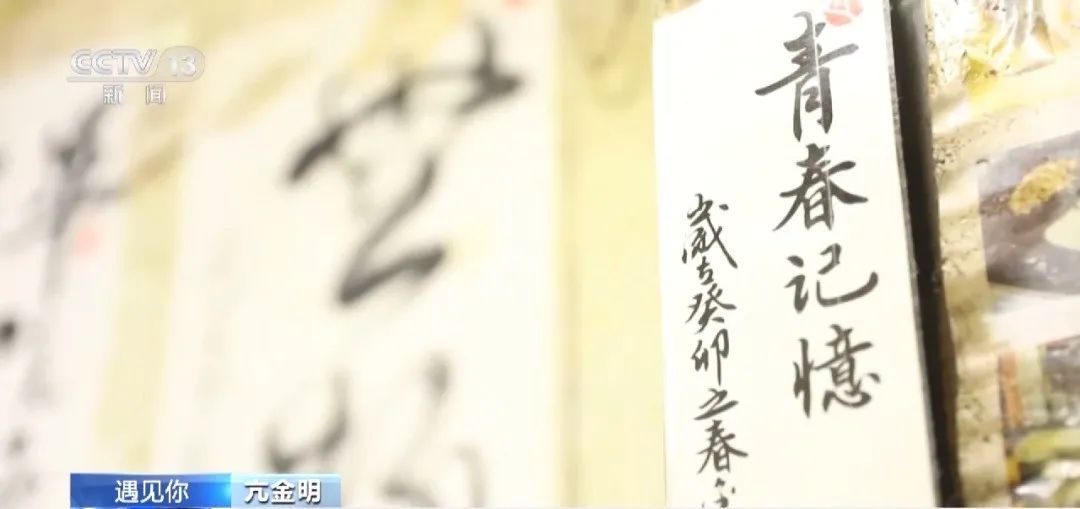 CCTV 13
新闻
青春记憶
歲在癸卯之春
遇见你
亢金明